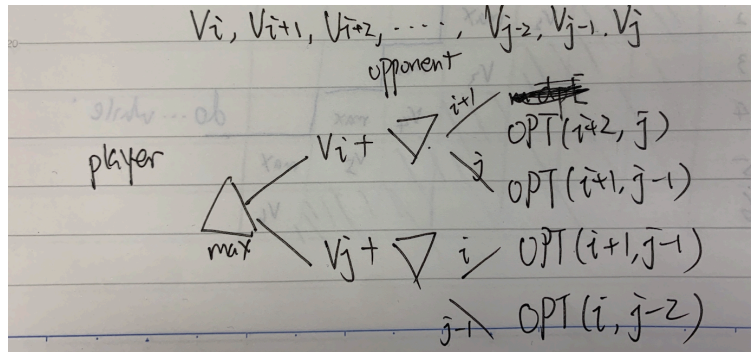 Vi, Vi+1, Vi+2, ....., Vj-2, Vj-1, Vj
opponent
player
max
Vi +
i+1
OPT(i+2, j)
j
OPT(i+1, j-1)
Vj +
i
OPT(i+1, j-1)
j-1
OPT(i, j-2)